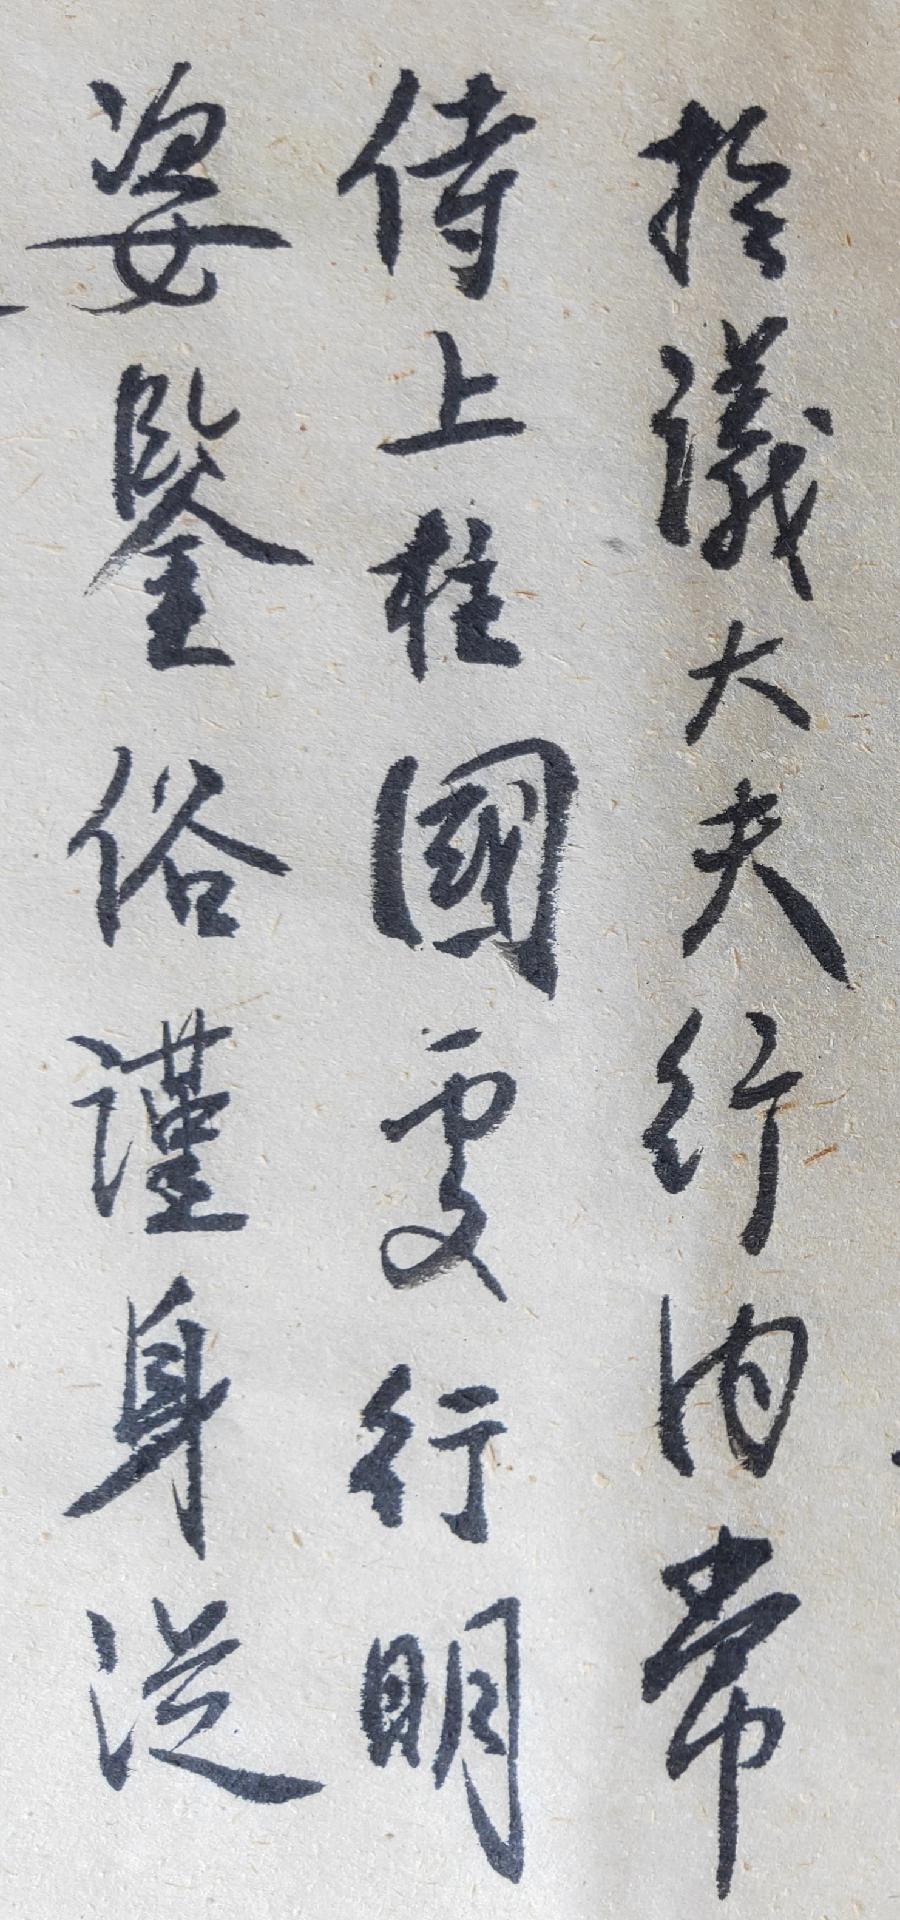 議大夫行內常
侍上柱國處行明
姿鑒俗謹身從